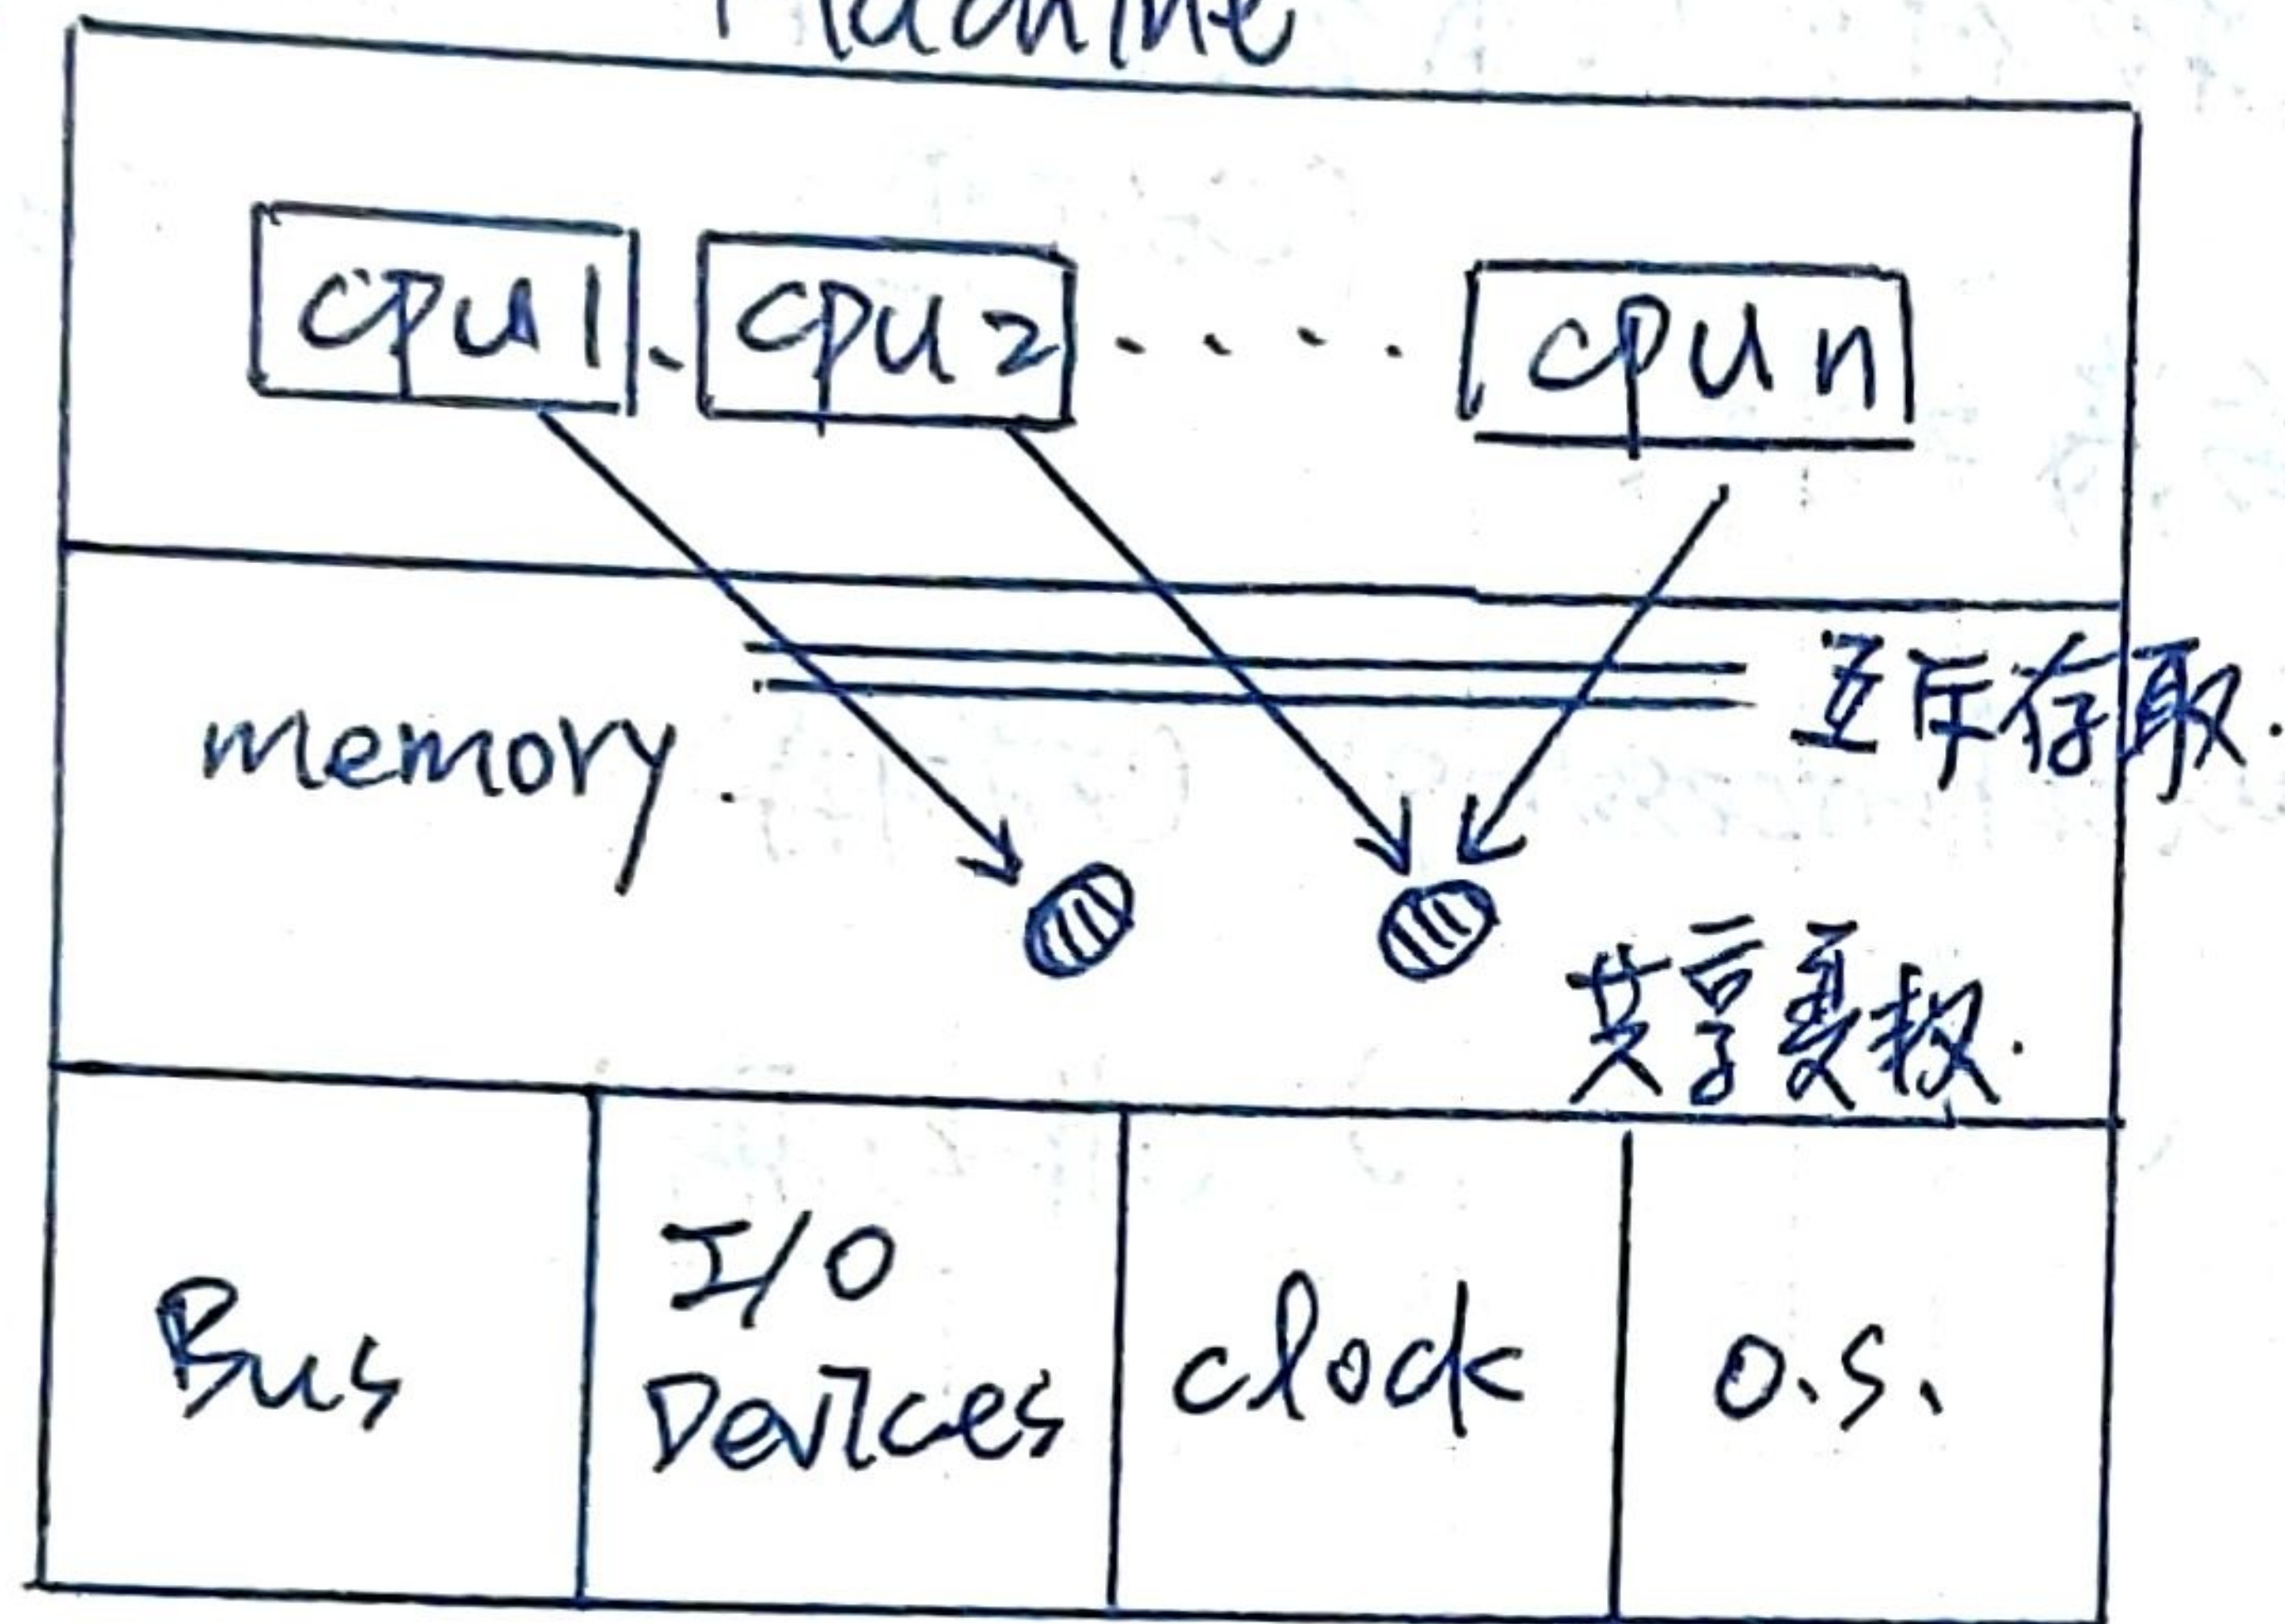 Machine
cpu1 . cpu2 ..... cpu n
互斥存取.
memory.
共享变数.
Bus
I/O Devices
clock
O.S.